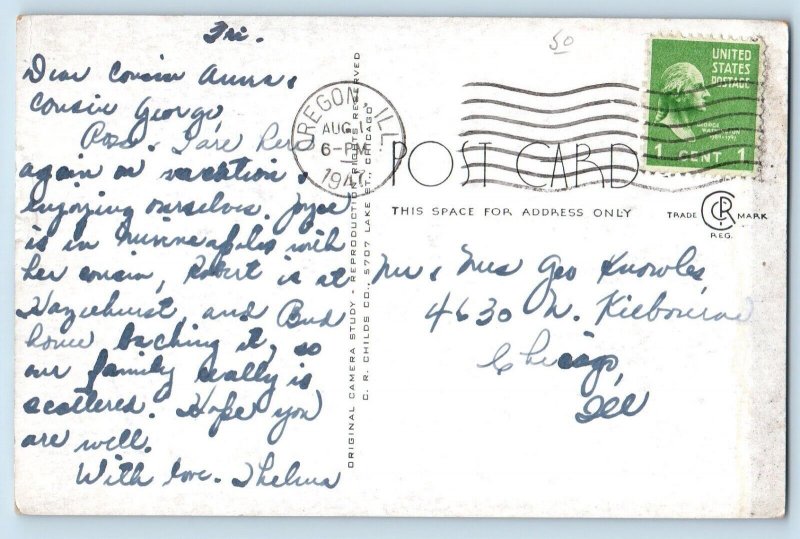 Fri.
Dear Cousin Anna &
Cousin George,
Ross & I are here
again on vacation &
enjoying ourselves. Joyce
is in Minneapolis with
her cousin, Robert is at
Hazelhurst, and Bud
home baching it, so
our family really is
scattered. Hope you
are well.
With love. Thelma
ORIGINAL CAMERA STUDY - REPRODUCTION RIGHTS RESERVED
C. R. CHILDS CO., 5707 LAKE ST., CHICAGO
OREGON, ILL.
AUG 1
6-PM
1947
50
UNITED
STATES
POSTAGE
GEORGE
WASHINGTON
1789-1797
1 CENT 1
POST CARD
THIS SPACE FOR ADDRESS ONLY
TRADE CR MARK
REG.
Mr & Mrs Geo Knowles
4630 N. Kilbourne
Chicago,
Ill